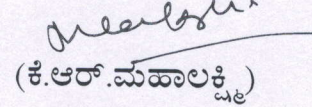 (ಕೆ.ಆರ್.ಮಹಾಲಕ್ಷ್ಮಿ)